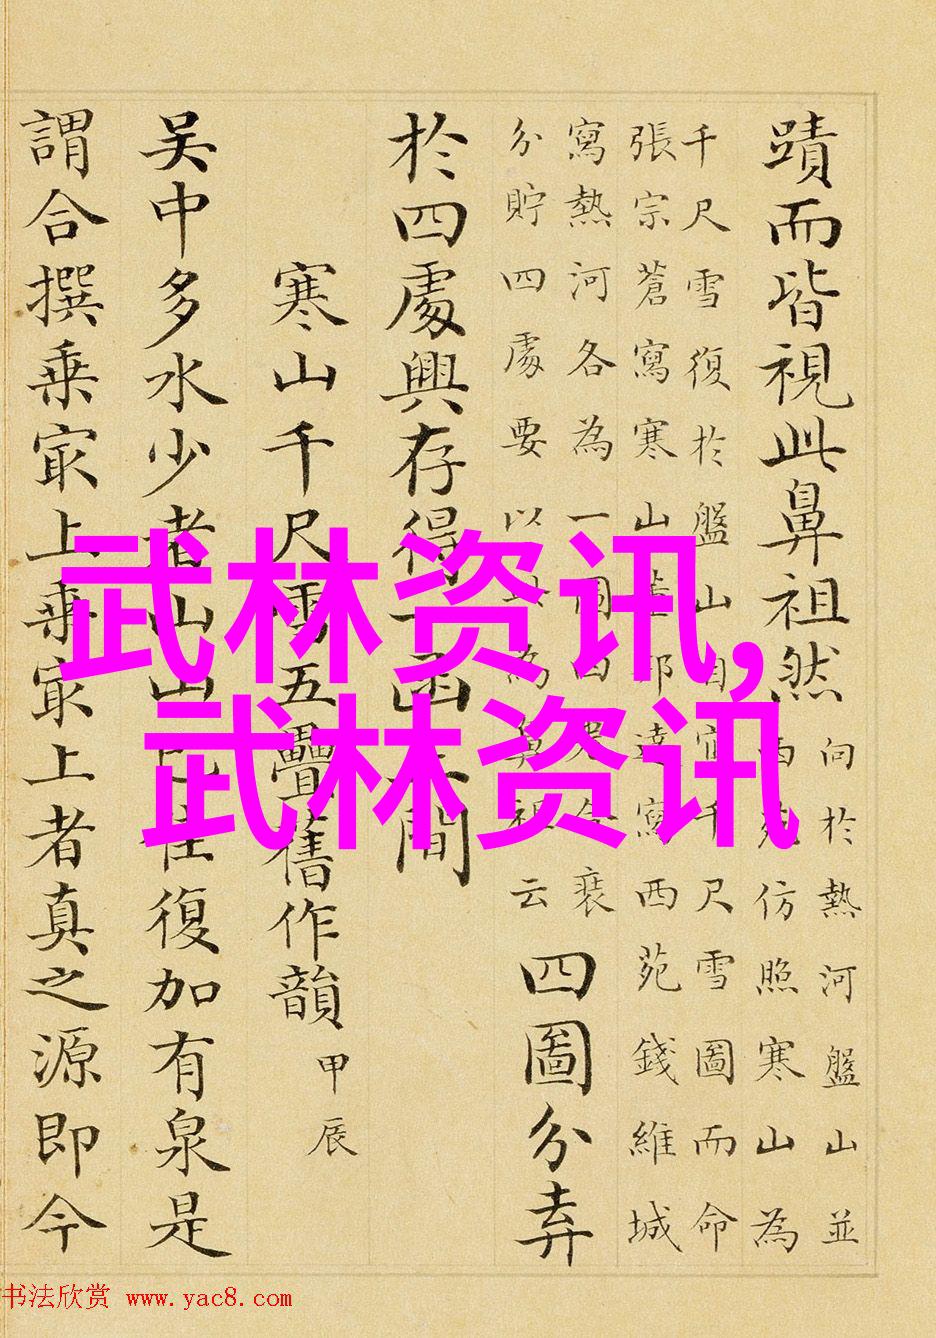 蹟而皆視此鼻祖然
向於熱河盤山並
西苑仿照寒山為
千尺雪復於盤山自千尺雪圖而命
張宗蒼寫寒山邦達寫西苑錢維城
寫熱河各為一
分貯四處要以為云
四圖分弆
於四處興存得函間
寒山千尺雪五疊舊作韻
甲辰
吳中多水少者山山復加有泉是
謂合撰乘冣上乘冣上者真之源即今
武林资讯,
武林资讯
书法欣赏 www.yac8.com